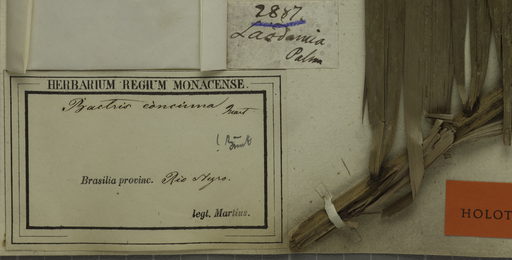 2887
Palm
HERBARIUM REGIUM MONACENSE.
Bactris concinna Mart
Brasilia provinc. Rio Negro.
legt. Martius.
HOLOT